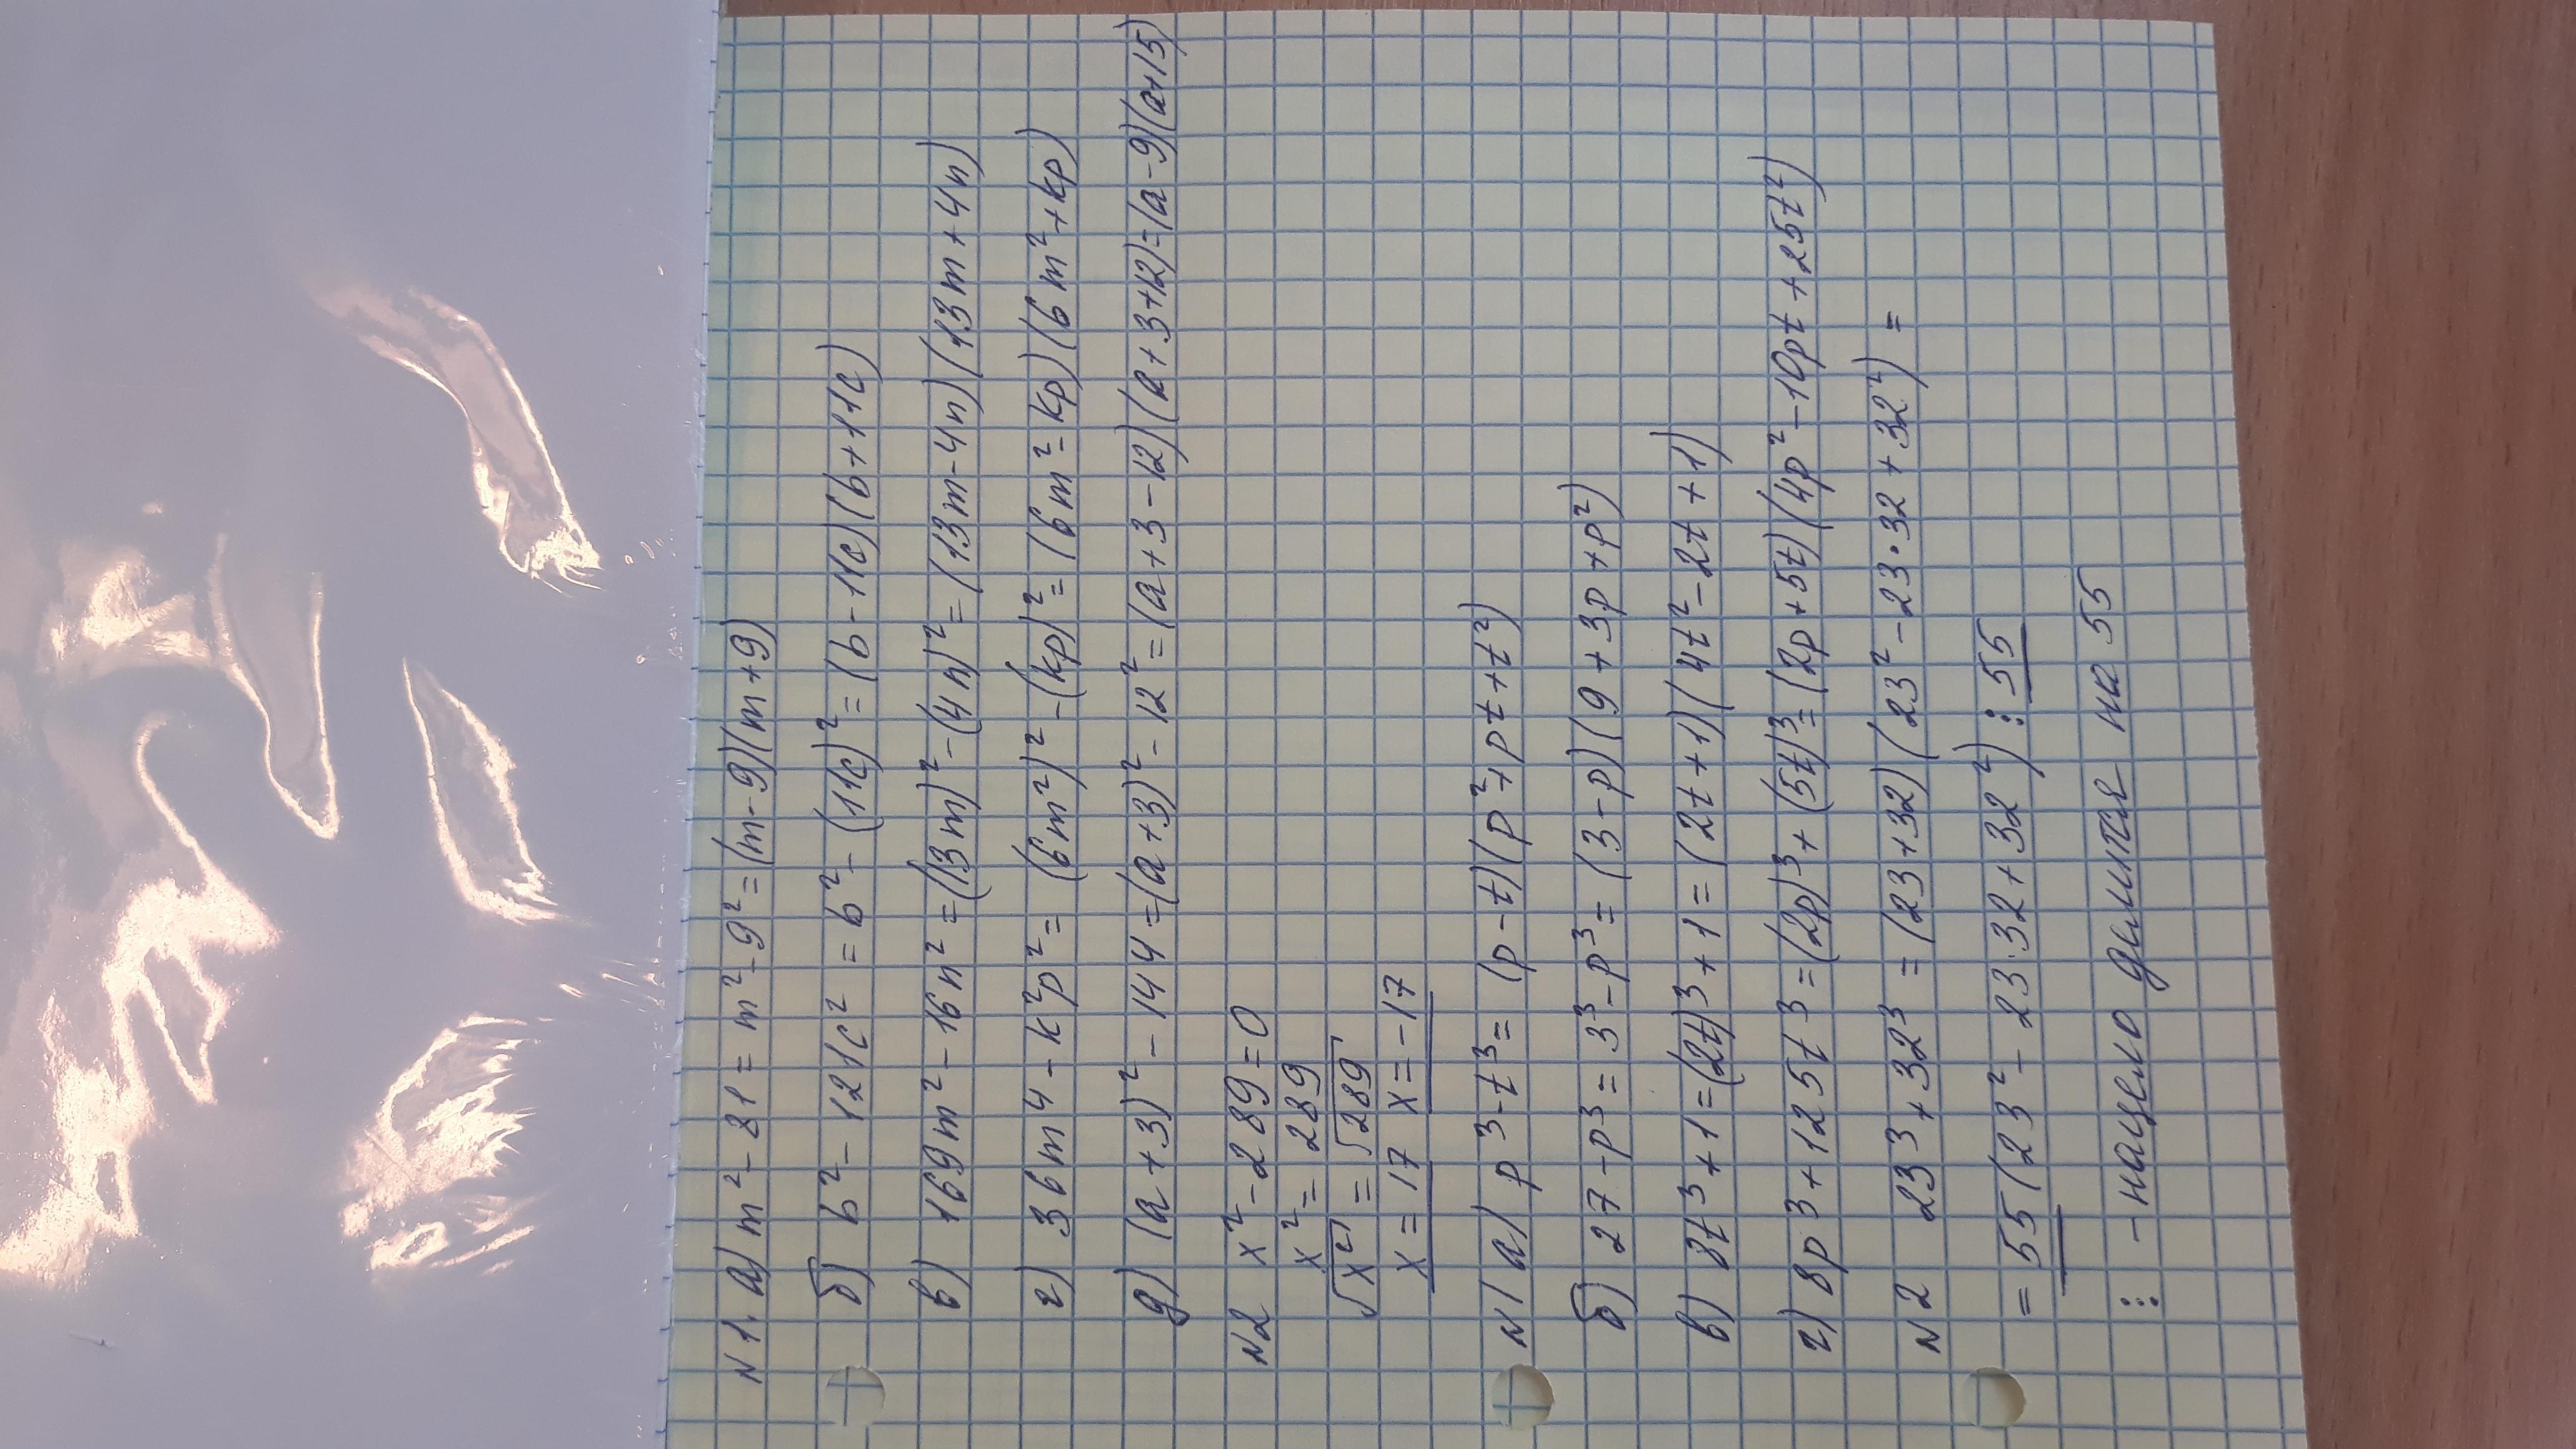 N 1. а) m² - 81 = m² - 9² = (m - 9)(m + 9)
б) b² - 121c² = b² - (11c)² = (b - 11c)(b + 11c)
в) 169m² - 16n² = (13m)² - (4n)² = (13m - 4n)(13m + 4n)
г) 36m⁴ - k²p² = (6m²)² - (kp)² = (6m² - kp)(6m² + kp)
д) (a + 3)² - 144 = (a + 3)² - 12² = (a + 3 - 12)(a + 3 + 12) = (a - 9)(a + 15)
N2 x² - 289 = 0
x² = 289
√x² = √289
x = 17 x = -17
N1 а) p³ - t³ = (p - t)(p² + pt + t²)
б) 27 - p³ = 3³ - p³ = (3 - p)(9 + 3p + p²)
в) 8t³ + 1 = (2t)³ + 1 = (2t + 1)(4t² - 2t + 1)
г) 8p³ + 125t³ = (2p)³ + (5t)³ = (2p + 5t)(4p² - 10pt + 25t²)
N 2 23³ + 32³ = (23 + 32)(23² - 23·32 + 32²) =
= 55(23² - 23·32 + 32²) ⋮ 55
⋮ - нацело делится на 55